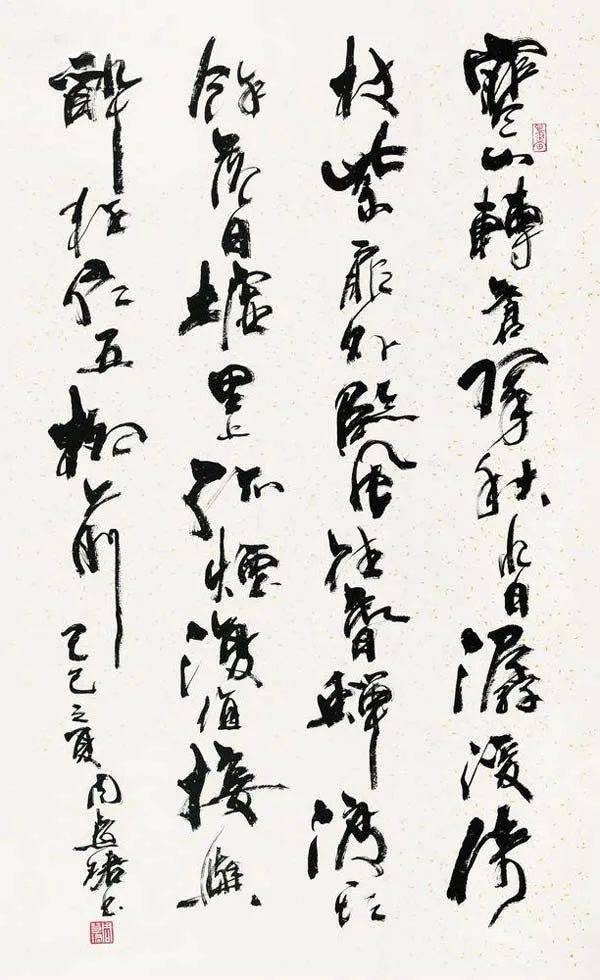 寒山轉蒼翠秋水日潺湲倚
杖柴扉外臨風聽暮蟬渡頭
餘落日墟里上孤煙復值接輿
醉狂歌五柳前 己巳之夏周慧珺書